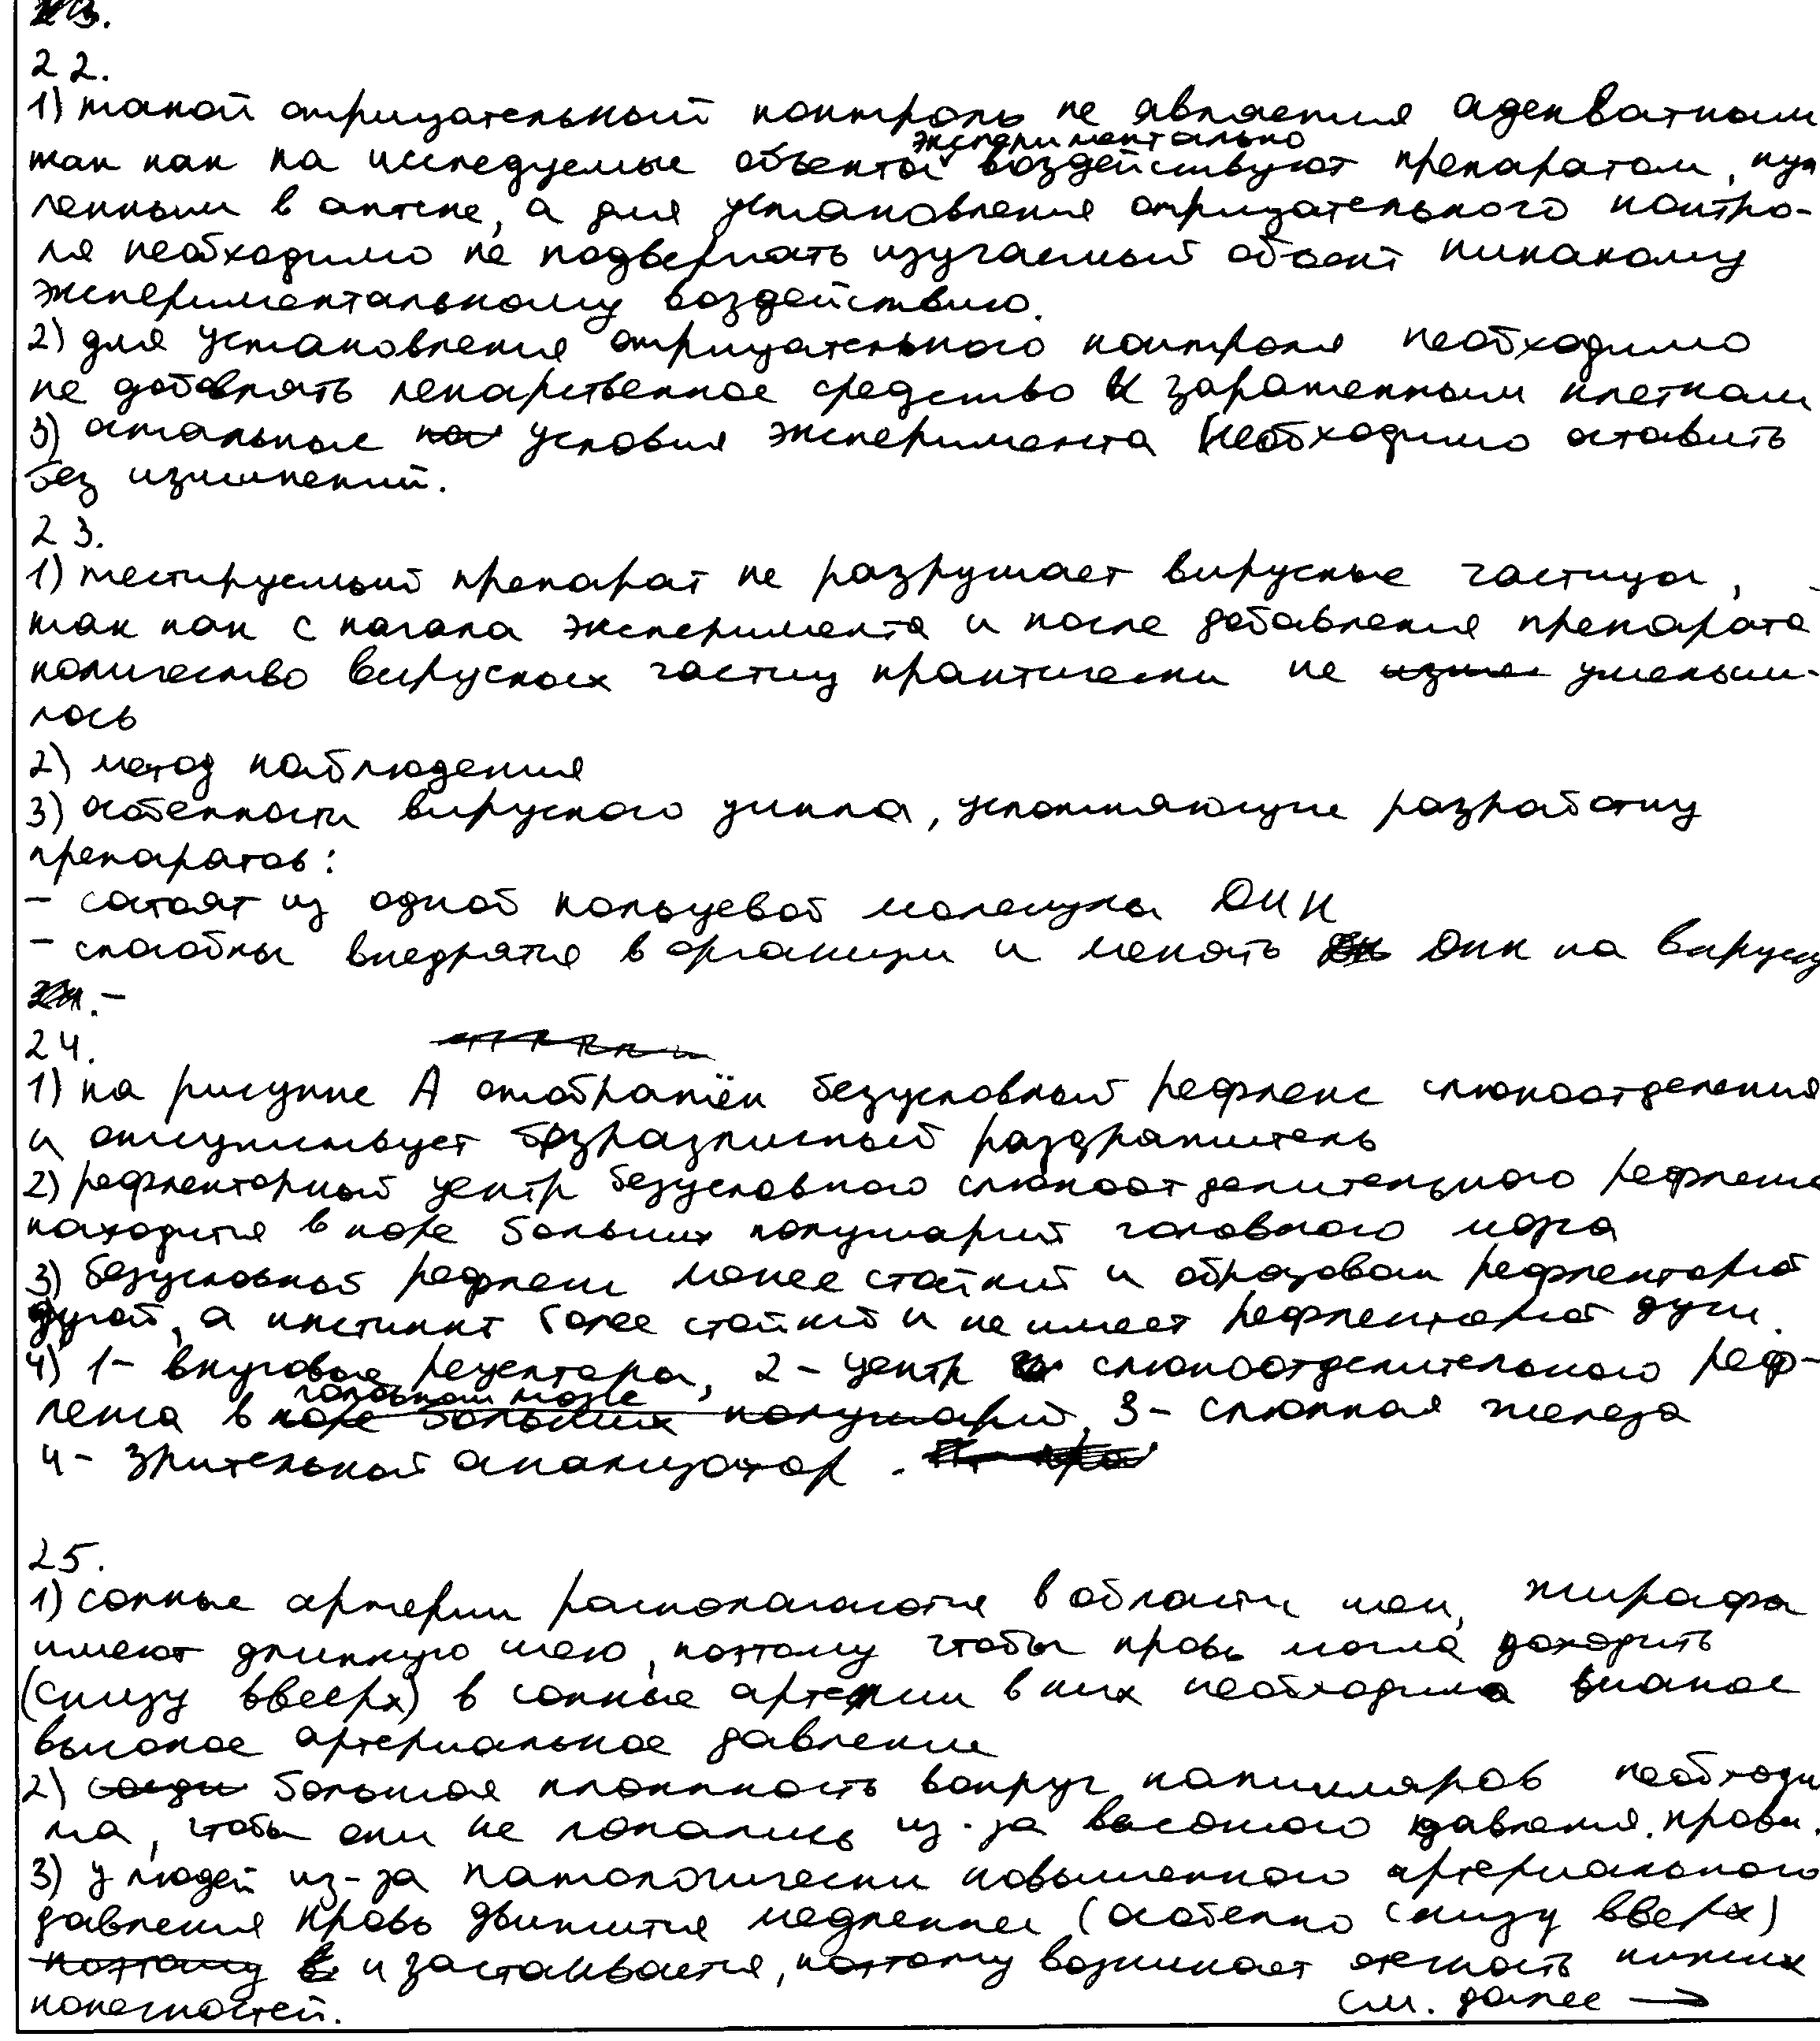 22.
1) такой отрицательный контроль не является адекватным
экспериментально
так как на исследуемые объекты воздействуют препаратом, куп
ленным в аптеке, а для установления отрицательного контро-
ля необходимо не подвергать изучаемый объект никакому
экспериментальному воздействию.
2) для установления отрицательного контроля необходимо
не добавлять лекарственное средство к зараженным клеткам
3) остальные условия эксперимента необходимо оставить
без изменений.
23.
1) тестируемый препарат не разрушает вирусные частицы,
так как с начала эксперимента и после добавления препарата
количество вирусных частиц практически не уменьши-
лось
2) метод наблюдения
3) особенности вирусного цикла, усложняющие разработку
препаратов:
- состоят из одной кольцевой молекулы ДНК
- способны внедрятся в организм и менять ДНК на вирусну
24.
1) на рисунке А отображён безусловный рефлекс слюноотделения
и отсутствует безразличный раздражитель
2) рефлекторный центр безусловного слюноотделительного рефлекса
находится в коре больших полушарий головного мозга
3) безусловный рефлекс менее стойкий и образован рефлекторной
дугой, а инстинкт более стойкий и не имеет рефлекторной дуги.
4) 1- вкусовые рецепторы, 2 - центр слюноотделительного реф-
головном мозге
лекса в коре больших полушарий, 3- слюнная железа
4- зрительный анализатор.
25.
1) сонные артерии располагаются в области шеи, жирафы
имеют длинную шею, поэтому чтобы кровь могла доходить
(снизу вверх) в сонные артерии в них необходимо
высокое артериальное давление
2) большая плотность вокруг капилляров необходи
ма, чтобы они не лопались из-за высокого давления крови.
3) у людей из-за патологически повышенного артериального
давления кровь движится медленнее (особенно снизу вверх)
и застаивается, поэтому возникает отечность нижних
конечностей.
см. далее →